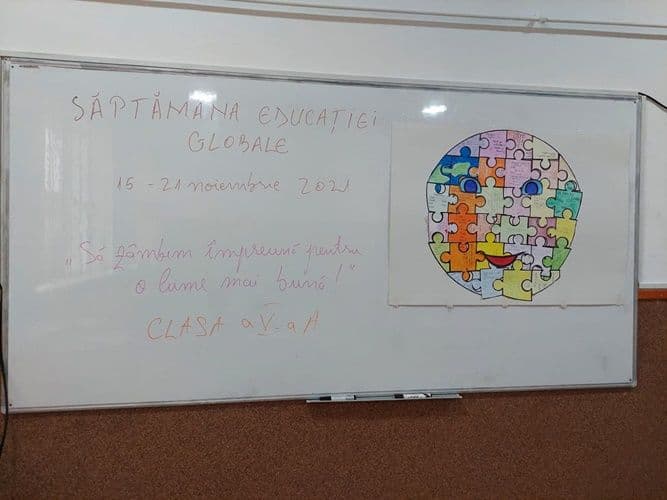 SĂPTĂMANA EDUCAȚIEI
GLOBALE
15 - 21 noiembrie 2021
„Să zâmbim împreună pentru
o lume mai bună!"
CLASA a V-a A